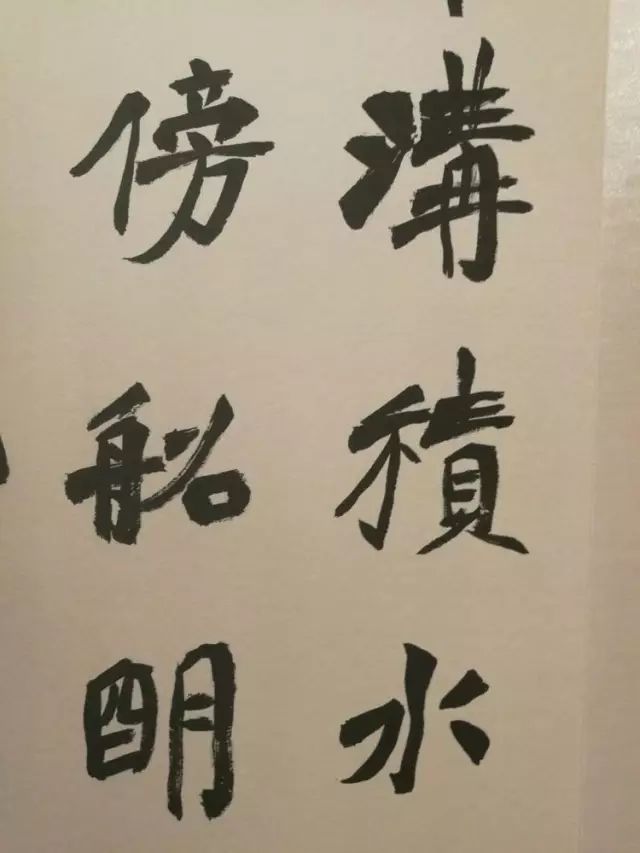 溝積水
傍船明